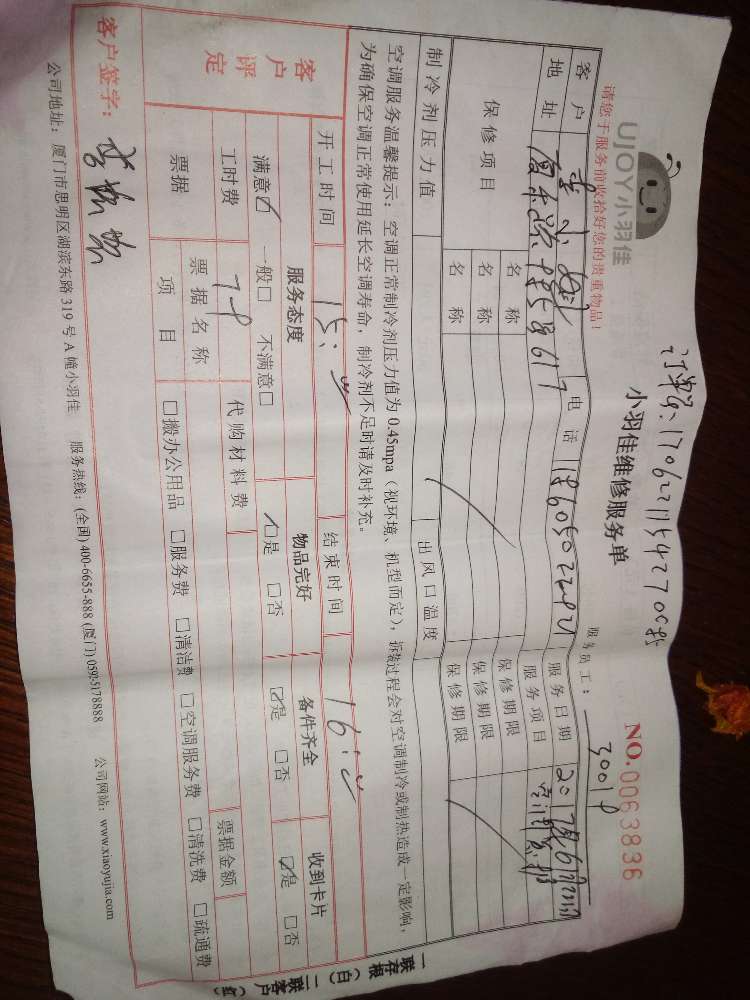 请您于服务前收拾好您的贵重物品！
UJOY小羽佳
小羽佳维修服务单
NO.0063836
服务员工：
客户
电话
服务日期
地址
服务项目
保修项目
名称
保修期限
名称
保修期限
名称
保修期限
制冷剂压力值
出风口温度
空调服务温馨提示：空调正常制冷剂压力值为 0.45mpa（视环境、机型而定），拆装过程会对空调制冷或制热造成一定影响，
为确保空调正常使用延长空调寿命，制冷剂不足时请及时补充。
客户评定
开工时间
15:
结束时间
16:
服务态度
物品完好
备件齐全
收到卡片
满意☑ 一般□ 不满意□
☑是 □否
☑是 □否
☑是 □否
工时费
78
代购材料费
票据金额
票据
票据名称
项目
□搬办公用品 □服务费 □清洁费 □空调服务费 □清洗费 □疏通费
客户签字：
公司地址：厦门市思明区湖滨东路 319 号 A 幢小羽佳 服务热线：(全国) 400-6655-888 (厦门) 0592-5178888 公司网站：www.xiaoyujia.com
一联存根（白）二联客户（红）